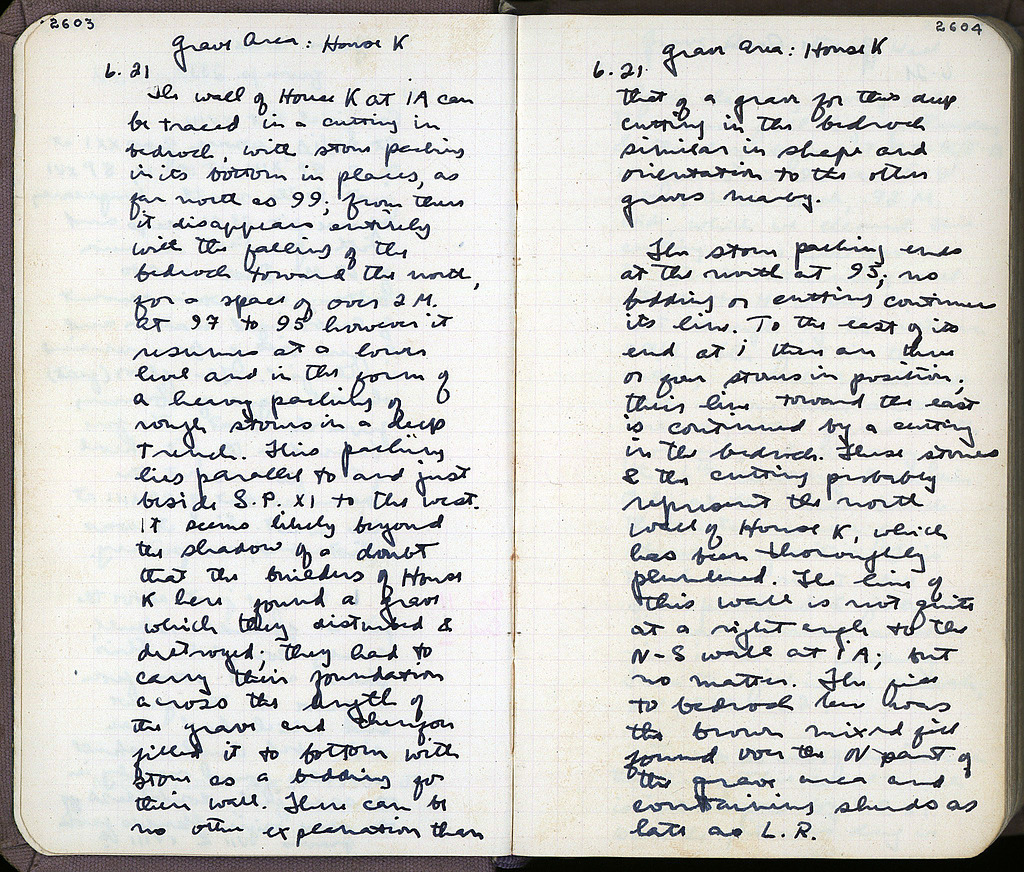 2603
Grave Area: House K
6.21
The wall of House K at 1A can
be traced in a cutting in
bedrock, with stone packing
in its bottom in places, as
far north as 99; from there
it disappears entirely
with the falling of the
bedrock toward the north,
for a space of over 2 M.
At 97 to 95 however it
resumes at a lower
level and in the form of
a heavy packing of
rough stones in a deep
trench. This packing
lies parallel to and just
beside S.P. XI to the west.
It seems likely beyond
the shadow of a doubt
that the builders of House
K here found a grave
which they disturbed &
destroyed; they had to
carry their foundation
across the length of
the grave and therefore
filled it to bottom with
stone as a bedding for
their wall. There can be
no other explanation than
2604
Grave Area: House K
6.21.
that of a grave for this deep
cutting in the bedrock
similar in shape and
orientation to the other
graves nearby.
The stone packing ends
at the north at 95; no
bedding or cutting continues
its line. To the east of its
end at i there are three
or four stones in position;
their line toward the east
is continued by a cutting
in the bedrock. These stones
& the cutting probably
represent the north
wall of House K, which
has been thoroughly
plundered. The line of
this wall is not quite
at a right angle to the
N-S wall at 1A; but
no matter. The fill
to bedrock here was
the brown mixed fill
found over the N part of
the grave area and
containing sherds as
late as L.R.